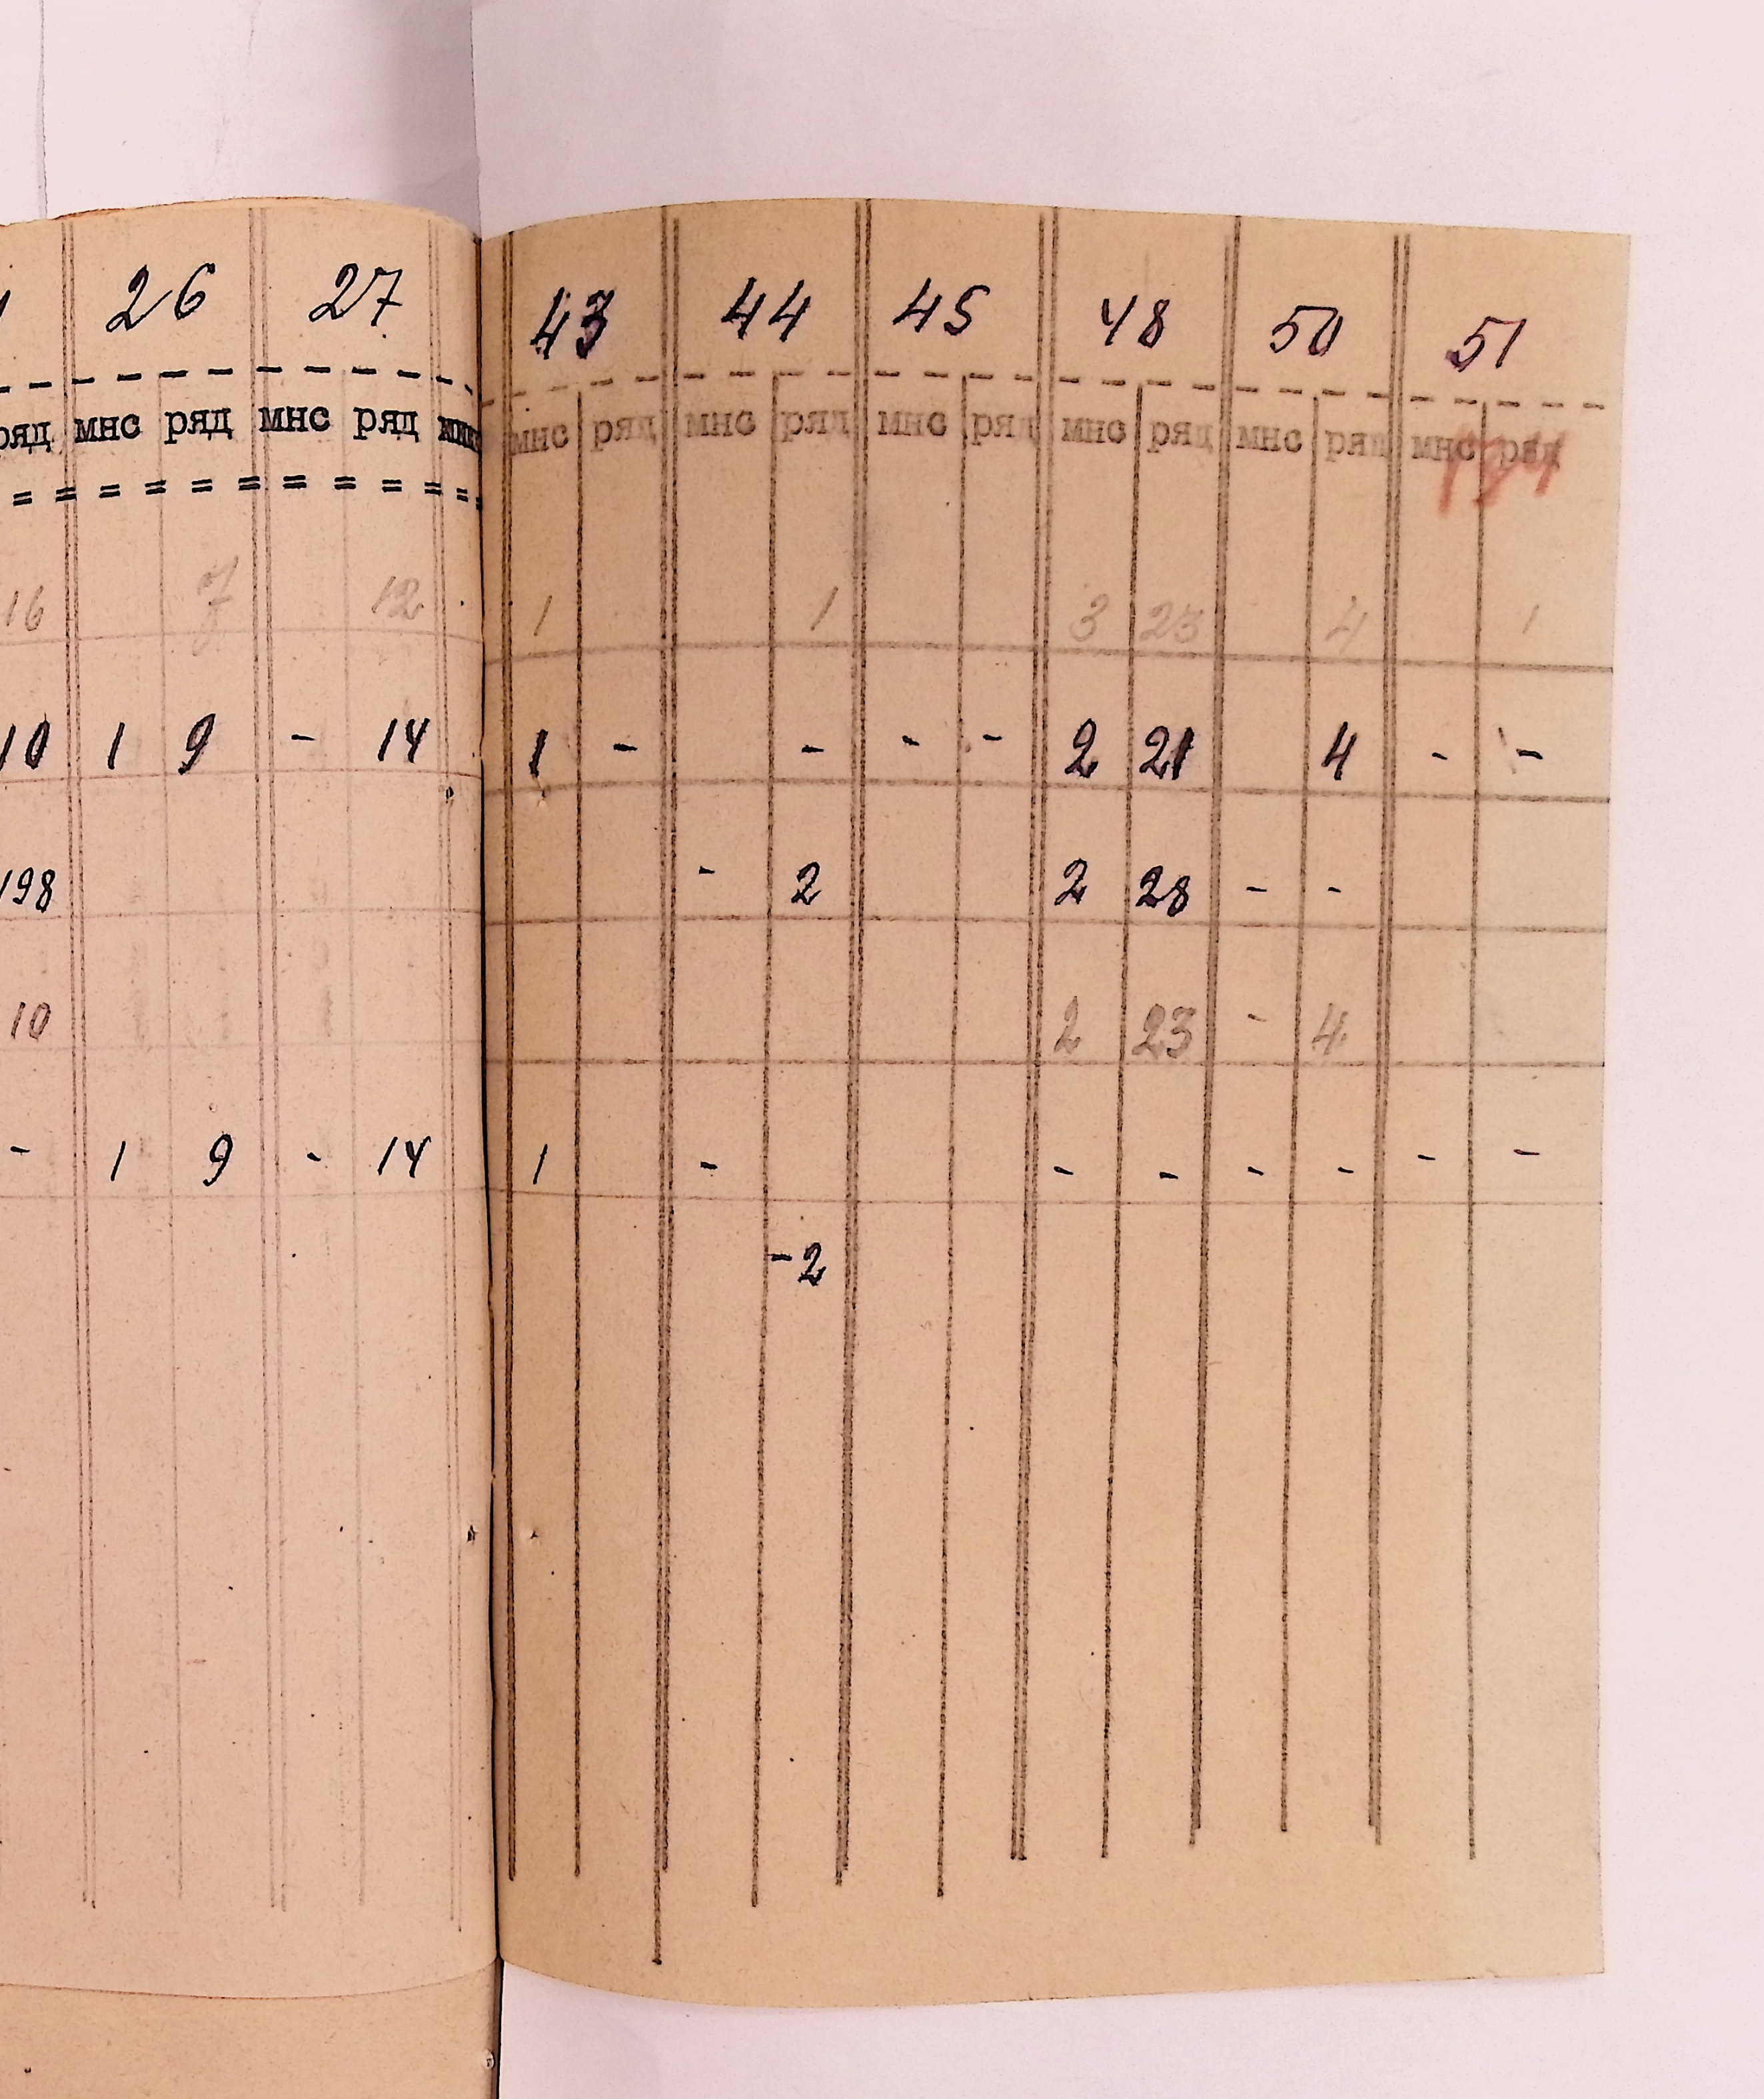 26 27 43 44 45 48 50 51
ряд мнс ряд мнс ряд мнс ряд мнс ряд мнс ряд мнс ряд мнс ряд мнс ряд
16 12 1 1 3 23 4 1
10 1 9 - 14 1 - - - - 2 21 4 - -
198 - 2 2 28 - -
10 2 23 - 4
- 1 9 - 14 1 - - - - - - -
-2